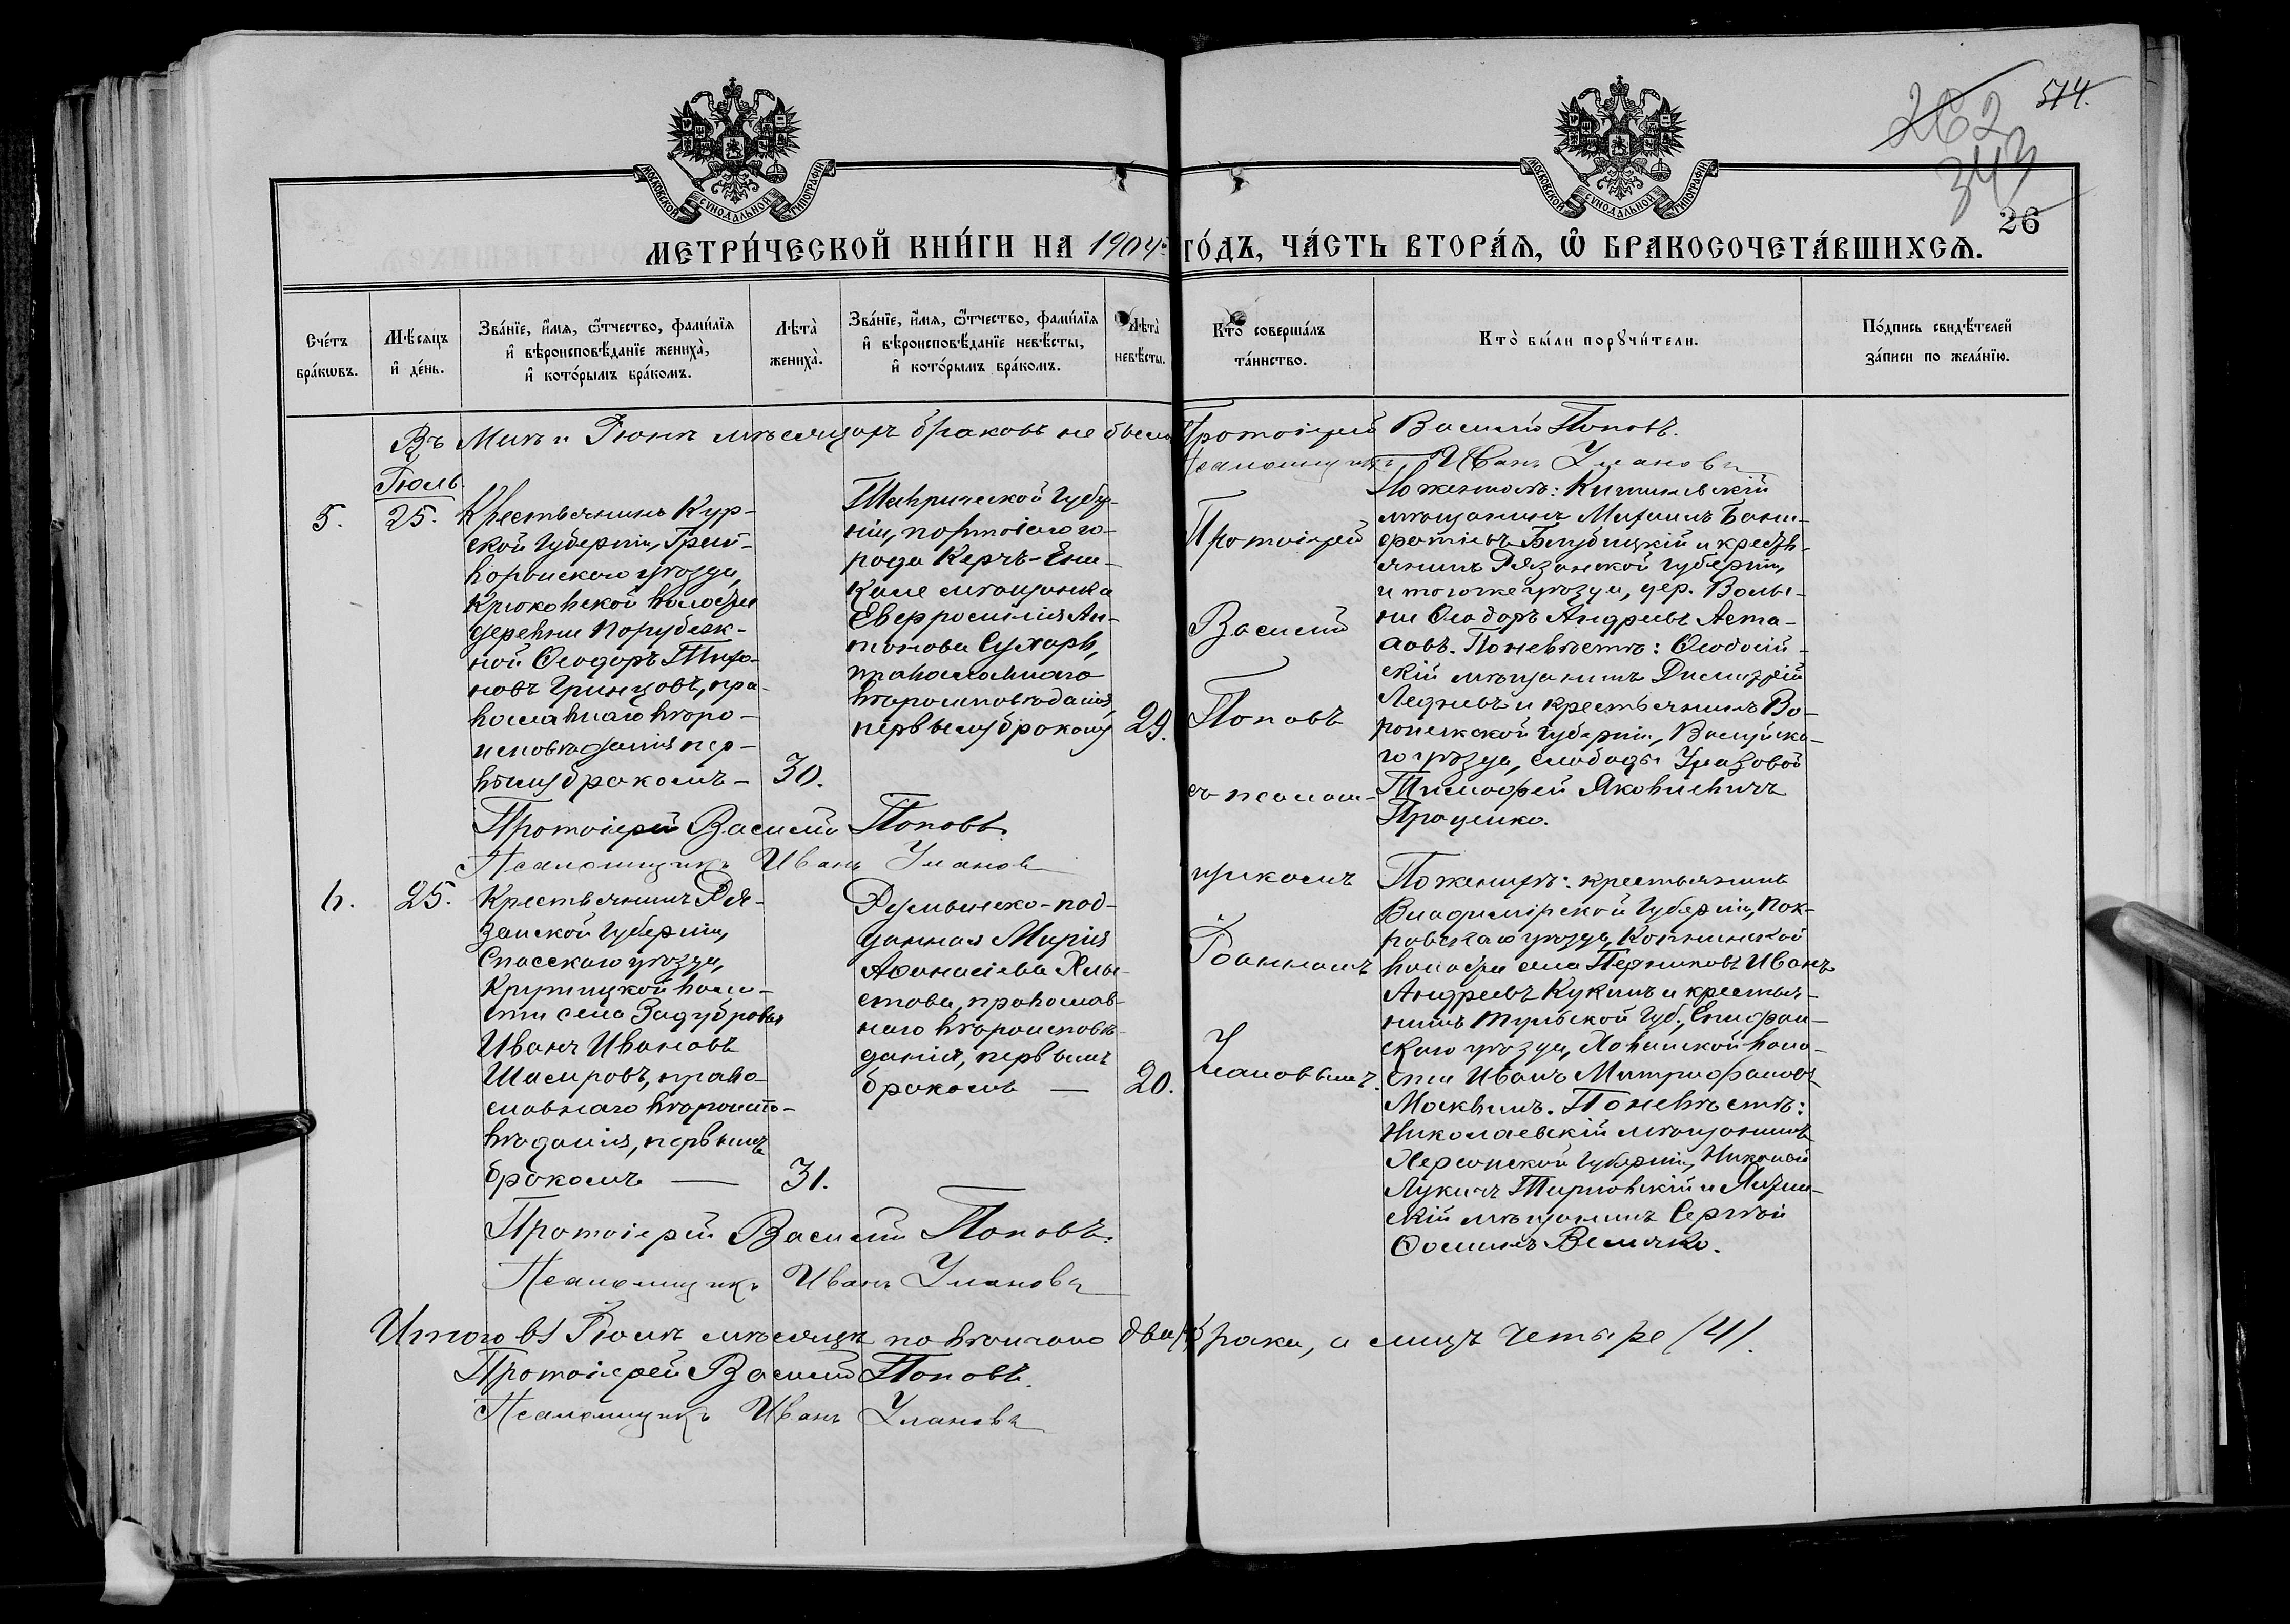 262
574.
343
26
МОСКОВСКОЙ СѴНОДАЛЬНОЙ ТИПОГРАФІИ
МОСКОВСКОЙ СѴНОДАЛЬНОЙ ТИПОГРАФІИ
МЕТРИ́ЧЕСКОЙ КНИ́ГИ НА 1904й ГО́ДЪ, ЧА́СТЬ ВТОРА́Ѧ, Ѽ БРАКОСОЧЕТА́ВШИХСѦ.
Сче́тъ
бра́кѡвъ.
Мѣ́сяцъ
и҆ де́нь.
Зва́нїе, и҆́мя, ѻ҆́тчество, фамѝлїя
и҆ вѣроисповѣ́данїе жениха̀,
и҆ кото́рымъ бра́комъ.
Лѣта̀
жениха̀.
Зва́нїе, и҆́мя, ѻ҆́тчество, фамѝлїя
и҆ вѣроисповѣ́данїе невѣ́сты,
и҆ кото́рымъ бра́комъ.
Лѣта̀
невѣ́сты.
Кто̀ соверша́лъ
та́инство.
Кто̀ бы́ли порꙋчи́тели.
По́дпись свидѣ́телей
за́писи по жела́нїю.
Въ Маѣ и Іюнѣ мѣсяцахъ браковъ не было
Протоіерей Василій Поповъ.
Псаломщикъ Иванъ Улановъ
Іюль.
5.
25.
Крестьянинъ Кур-
ской губерніи, Грай-
воронскаго уѣзда,
Крюковской волости
деревни Порубеж-
ной Ѳеодоръ Тихо-
новъ Гринцовъ, пра-
вославнаго вѣро-
исповѣданія пер-
вымъ бракомъ –
30.
Таврической губер-
ніи, портоваго го-
рода Керчъ-Ени-
кале мѣщанка
Евфросинія Ан-
тонова Сухарь,
православнаго
вѣроисповѣданія,
первымъ бракомъ
29.
Протоіерей
Василій
Поповъ
съ псалом-
щикомъ
Іоанномъ
Улановымъ.
По женихѣ: Кишиневскій
мѣщанинъ Михаилъ
и кресть-
янинъ Рязанской губерніи,
и того же уѣзда, дер. Волы-
ни Ѳеодоръ Андреевъ Аста-
ховъ. По невѣстѣ: Ѳеодосій-
скій мѣщанинъ Димитрій
Ледневъ и крестьянинъ Во-
ронежской губерніи, Валуйска-
го уѣзда, слободы Уразовой
Тимофей Яковлевичъ
Проценко.
Протоіерей Василій Поповъ.
Псаломщикъ Иванъ Улановъ
6.
25.
Крестьянинъ Ря-
занской губерніи,
Спасскаго уѣзда,
Крутицкой воло-
сти села Задубровья
Иванъ Ивановъ
Шамровъ, право-
славнаго вѣроиспо-
вѣданія, первымъ
бракомъ —
31.
Румынско-под-
данная Марія
Аѳанасіева Хлы-
стова, православ-
наго вѣроисповѣ-
данія, первымъ
бракомъ —
20.
По женихѣ: крестьянинъ
Владимірской губерніи, Пок-
ровскаго уѣзда, Копнинской
волости села Перниковъ Иванъ
Андреевъ Кукинъ и крестья-
нинъ Тульской губ., Епифан-
скаго уѣзда, воло-
сти Иванъ Митрофановъ
Москвинъ. По невѣстѣ:
Николаевскій мѣщанинъ
Херсонской губерніи, Николай
Лукичъ Тарновскій и
скій мѣщанинъ Сергѣй
Ѳоминъ Величко.
Протоіерей Василій Поповъ.
Псаломщикъ Иванъ Улановъ
Итого въ Іюлѣ мѣсяцѣ повѣнчано два брака, а лицъ четыре /4/.
Протоіерей Василій Поповъ.
Псаломщикъ Иванъ Улановъ